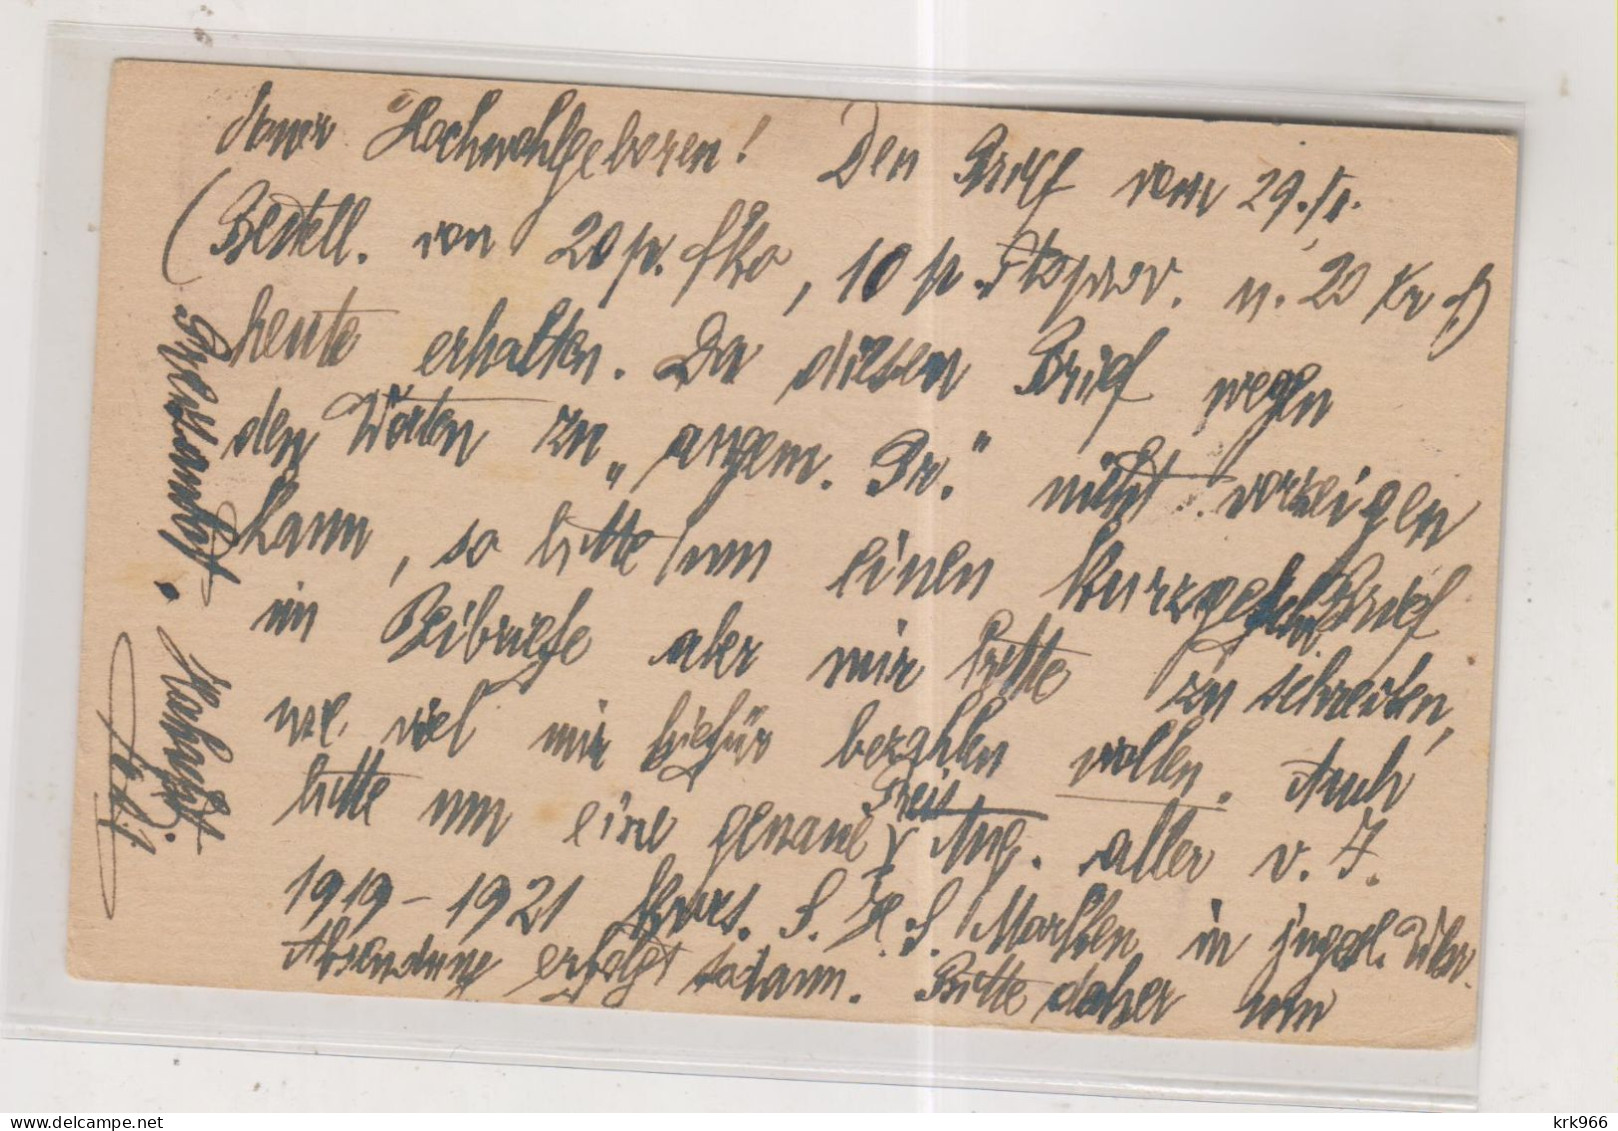 Hochwohlgeboren! Den Brief vom 29./I.
(Bestell. von 20 p. 10 p. u. 20
heute erhalten. Da diesen Brief wegen
den Worten zu „angem. Pr." nicht
kann, so bitte um einen Brief
im Beibriefe aber mir bitte zu schreiben,
wie viel mir hiefür bezahlen wollen. Auch
bitte um eine genaue Preis Ang. aller v. J.
1919-1921 Kurs. S. H. S. Marken in
Absendung erfolgt sodann. Bitte daher um
krk966